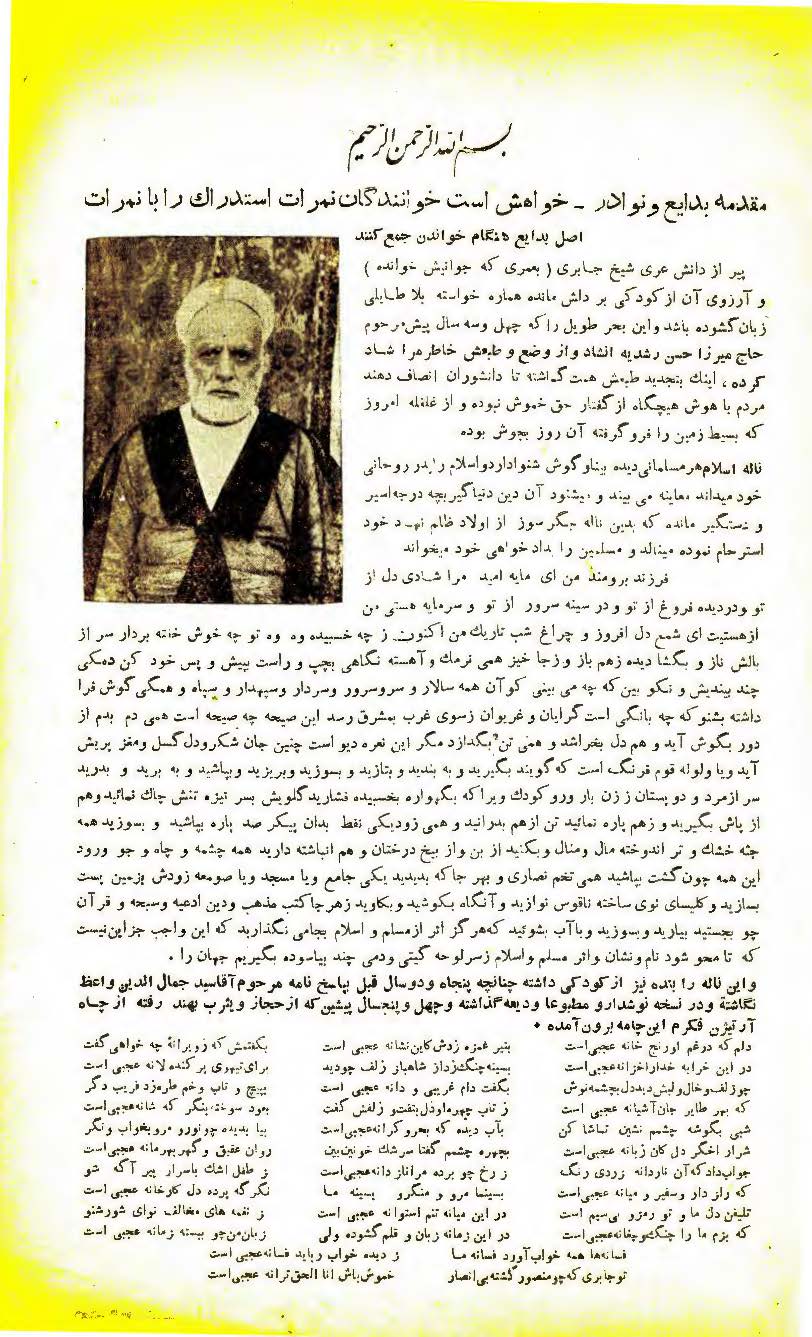 بسم الله الرحمن الرحیم
مقدمه بدایع و نوادر ـ خواهش است خوانندگان نمرات استدراك را با نمرات
اصل بدایع هنگام خواندن جمع کنند
پیر از دانش عری شیخ جابری ( بعمری که جوانیش خوانده )
و آرزوی آن از کودکی بر دلش مانده هماره خواسته بلا طایلی
زبان گشوده باشد و این بحر طویل را که چهل وسه سال پیش مرحوم
حاج میرزا حسن رشدیه انشاد و از وضع و طبعش خاطر مرا شاد
کرده ، اینك بتجدید طبعش همت گماشته تا دانشوران انصاف دهند
مردم با هوش هیچگاه از گفتار حق خموش نبوده و از غلغله امروز
که بسیط زمین را فرو گرفته آن روز بجوش بوده
ناله اسلام هر مسلمانی دیده بینا و گوش شنوا دارد و اسلام را پدر روحانی
خود میداند معاینه می بیند و میشنود آن دین دنیا گیر بچه درجه اسیر
و دستگیر مانده که بدین ناله جگر سوز از اولاد ظلم نهاد خود
استرحام نموده مینالد و مسلمین را بداد خواهی خود میخواند
فرزند برومند من ای مایه امید مرا شادی دل از
تو و در دیده فروغ از تو و در سینه سرور از تو و سرمایه هستی من
از هستیت ای شمع دل افروز و چراغ شب تاریك من اکنون ز چه خسبیده وه وه تو چه خوش خفته بردار سر از
بالش ناز و بگشا دیده زهم باز و زجا خیز همی نرمك و آهسته نگاهی بچپ و راست و پیش و پس خود کن دمکی
چند بیندیش و نکو بین که چه می بینی کو آن همه سالار و سرور و سرور و سردار و سپهدار و سپاه و همگی گوش فرا
داشته بشنو که چه بانگی است گرایان و غریوان ز سوی غرب بمشرق رسد این صیحه چه صیحه است همی دم بدم از
دور بگوش آید و هم دل بخراشد و همی تن بگدازد مگر این نعره دیو است چنین جان شکر و دل گسل و مغز پریش
آید و یا ولوله قوم فرنگ است که گویند بگیرید و به بندید و بتازید و بسوزید و بریزید و بپاشید و به برید و بدرید
سر از مرد و دو پستان ز زن بار ور و کودك و یرا که بگهواره بخسبیده فشارید گلویش بسر نیزه تنش چاك نمائید و هم
از پاش بگیرید و زهم پاره نمائید تن از هم بدرانید و همی زود یکی نفط بدان پیکر صد پاره بپاشید و بسوزید همه
جثه خشك و تر اندوخته مال و منال و بکنید از بن و از بیخ درختان و هم انباشته دارید همه چشمه و چاه و جو ورود
این همه چون گشت بپاشید همی تخم نصاری و بهر جا که بدیدید یکی جامع و یا مسجد و یا صومعه زودش بزمین پست
بسازید و کلیسای نوی ساخته ناقوس نوازید و آنگاه بکوشید و بکاوید زهر جا کتب مذهب و دین ادعیه و سبحه و قرآن
چو بجستید بیارید و بسوزید و بآب بشوئید که هرگز اثر از مسلم و اسلام بجامی نگذارید که این واجب و جز این نیست
که تا محو شود نام و نشان و اثر مسلم و اسلام ز سر لوحه گیتی و دمی چند بیاسوده بگیریم جهان را .
و این ناله را بنده نیز از کودکی داشته چنانچه پنجاه و دو سال قبل بپاسخ نامه مرحوم آقا سید جمال الدین واعظ
نگاشته و در نسخه نوشدارو مطبوعا ودیعه گذاشته و چهل و پنجسال پیشین که از حجاز و یثرب بهند رفته از چاه
آرتیزن فکرم این چامه برون آمده .
دلم که درغم اورنج خانه عجبی است بتیر غمزه زدش کاین نشانه عجبی است بگفتمش که زویرانۀ چه خواهی گفت
در این خرابه خدا راخزانه عجبی است بسینه چنگ زداز شاهباز زلف چودید برای تیهوی پر کنده لانه عجبی است
چو زلف و خال و لبش دید دل بچشمه نوش بگفت دام غریبی و دانه عجبی است بپیچ و تاب و خم طره زد فریب دگر
که بهر طایر جان آشیانه عجبی است ز تاب چهره او دل بتفت و زلفش گفت بعود سوخته بنگر که شانه عجبی است
شبی بگوشه چشمم نشین تماشا کن بآب دیده که بحر و کرانه عجبی است بیا بدیده چو نور و مرو بخواب و نگر
شرار اخگر دل کان زبانه عجبی است بچهره چشمم گفتا سرشك خونین بین روان عقیق و گهر بهر مانه عجبی است
جواب داد که آن ناردانه زردی رنگ ز رخ چو برده مرا نار دانه عجبی است ز طفل اشك باسرار پیر آگه شو
که راز دار و سفیر و میانه عجبی است بسینما مرو و منگر و بسینه ما نگر که پرده دل کارخانه عجبی است
تلیفن دل ما و تو رمزو بی سیم است در این میانه تنم استوانه عجبی است ز نغمه های مخالف نوای شور شنو
که بزم ما را چنگ و چغانه عجبی است در این زمانه زبان و قلم گشوده ولی زبان من چو ببسته زمانه عجبی است
فسانه ها همه خواب آورد فسانه ما ز دیده خواب رباید فسانه عجبی است
تو جابری که چو منصور گشته بی انصار خموش باش انا الحق ترانه عجبی است